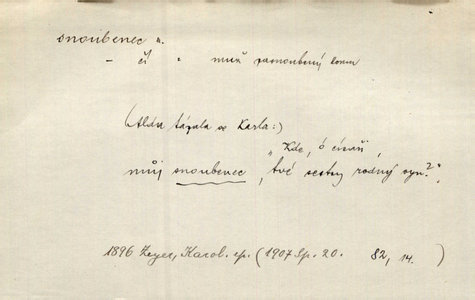 snoubenec m.
– čí " muž zasnoubený komu
(Alda tázala se Karla:)
„Kde, ó císaři,
můj snoubenec, tvé sestry rodný syn?"
1896 Zeyer, Karol. ep. (1907 Sp. 20. 82, 14. )